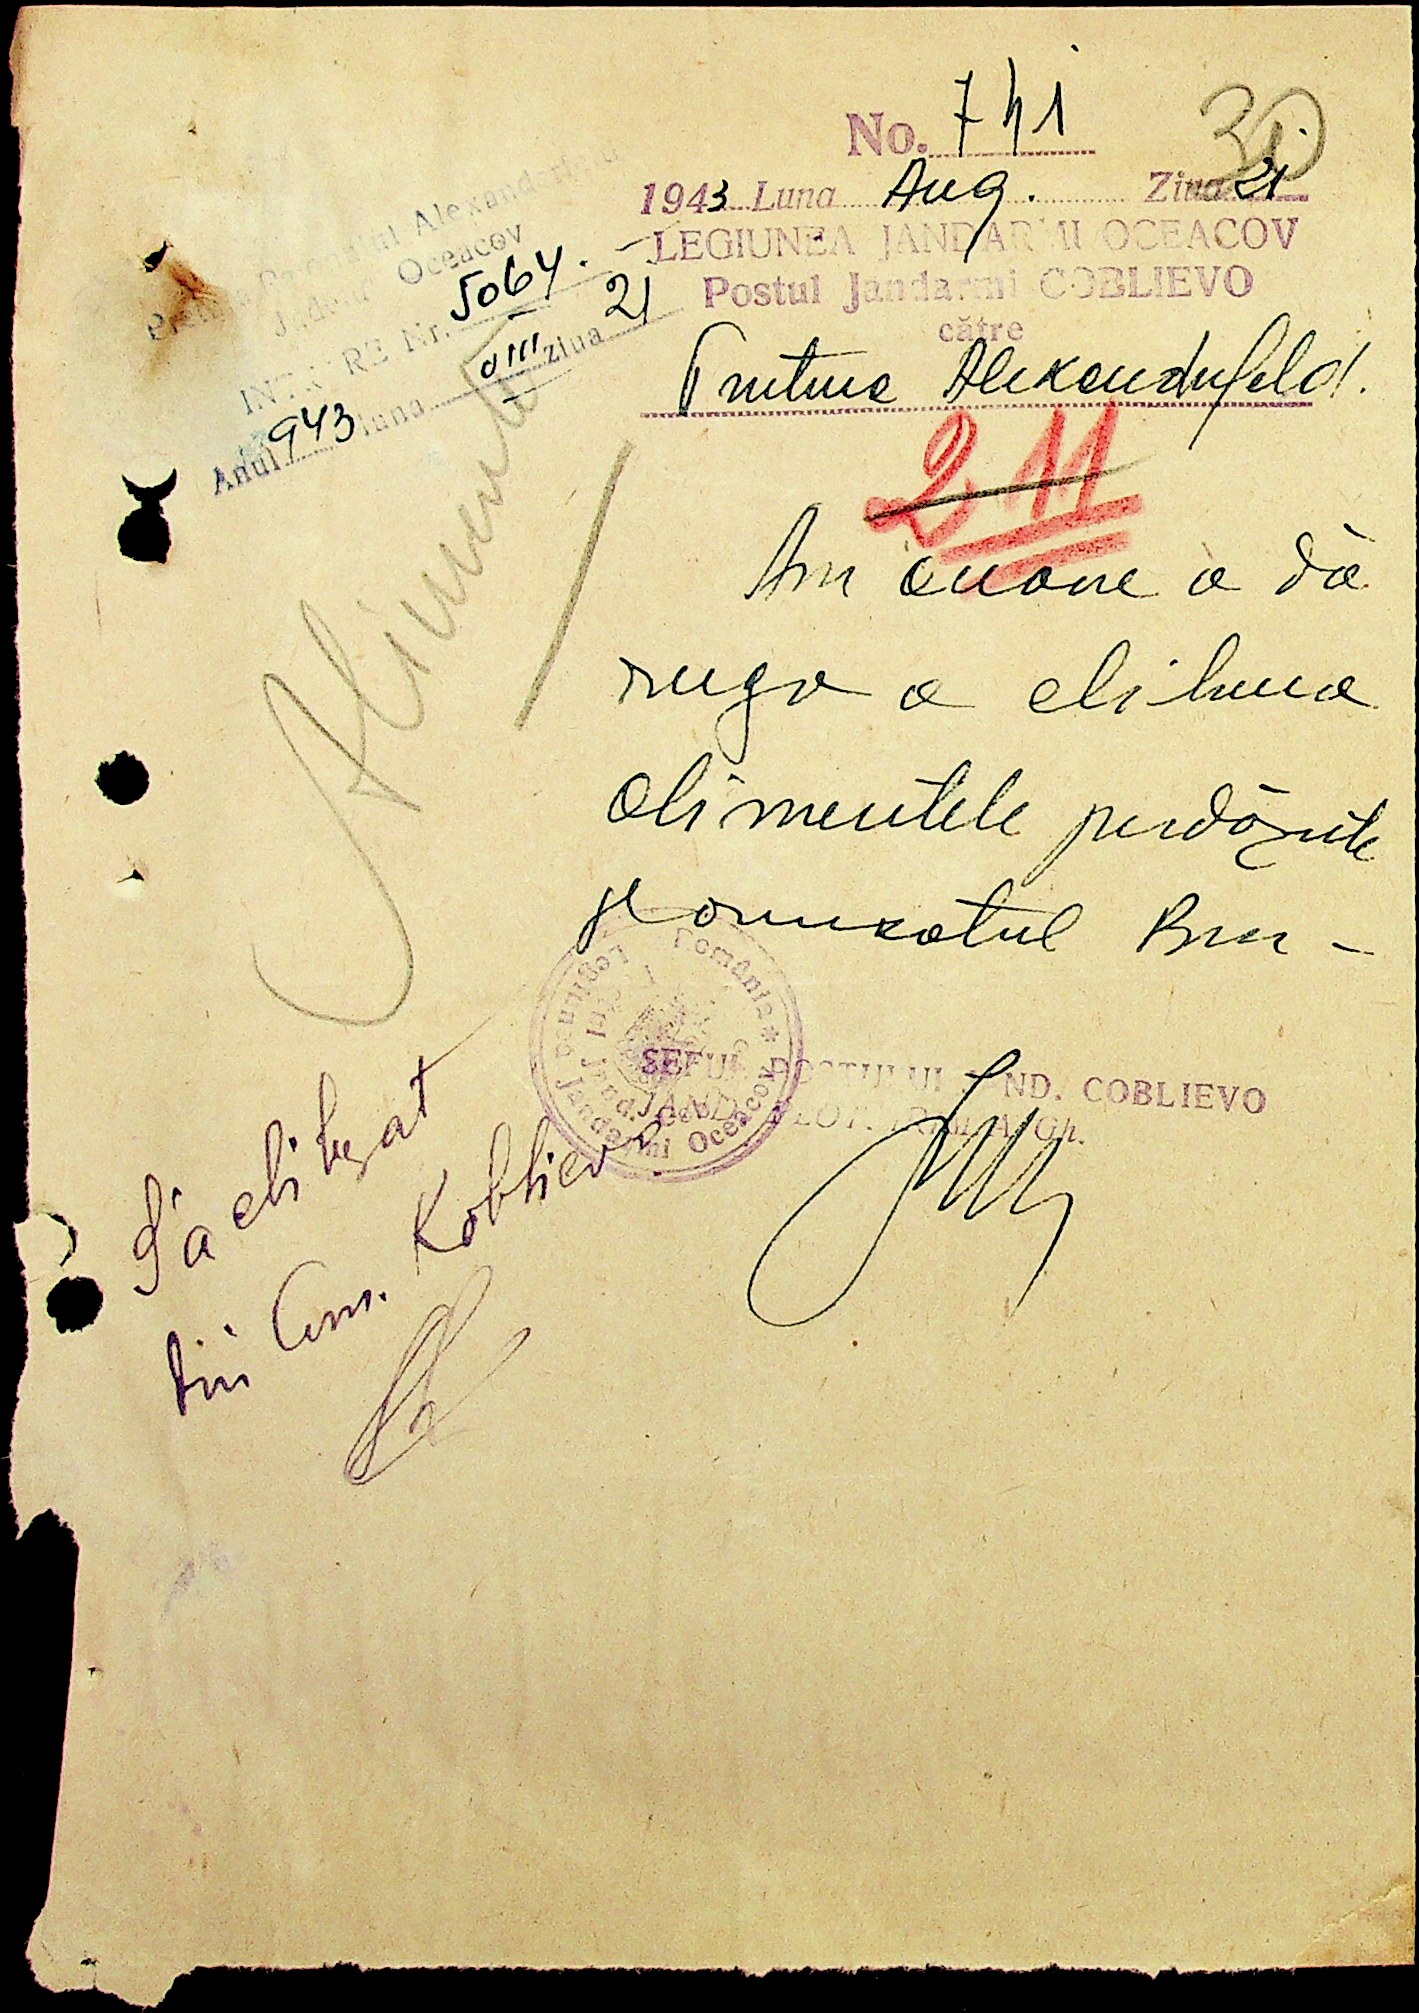 No. 741
30
1943 Luna Aug. Ziua 21
LEGIUNEA JANDARMI OCEACOV
Postul Jandarmi COBLIEVO
către
Pretura Alexandrfeld.
Alexanderfeld
Oceacov
INTRARE Nr. 5064.
Anul 943 luna VIII ziua 21
Alimente
211
Am onoare a vă
ruga a elibera
alimentele
România * Legiunea Jandarmi Oceacov
SEFUL POSTULUI JAND. COBLIEVO
S'a eliberat
din Com. Koblievo